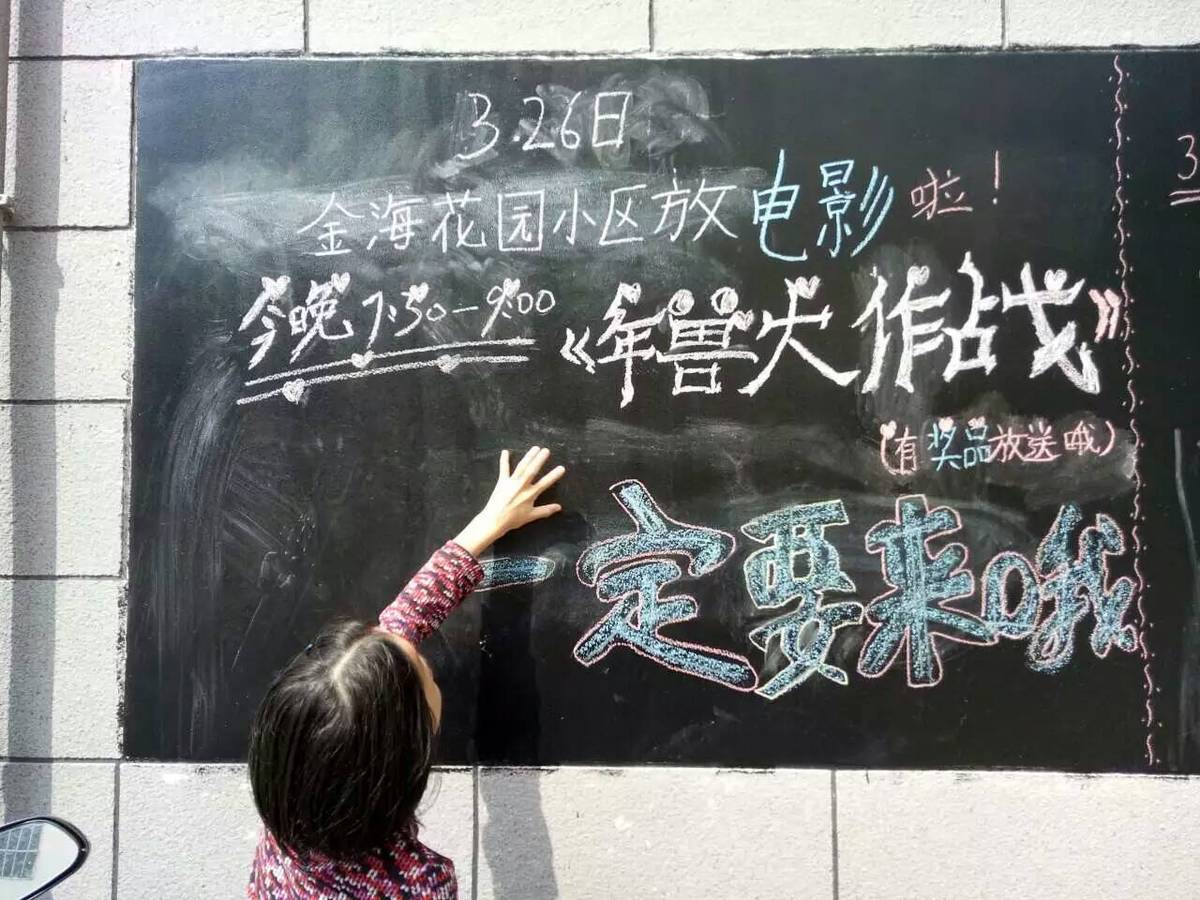 3.26日
金海花园小区放电影啦！
今晚7:30—9:00《年兽大作战》
(有奖品放送哦)
一定要来哦
3